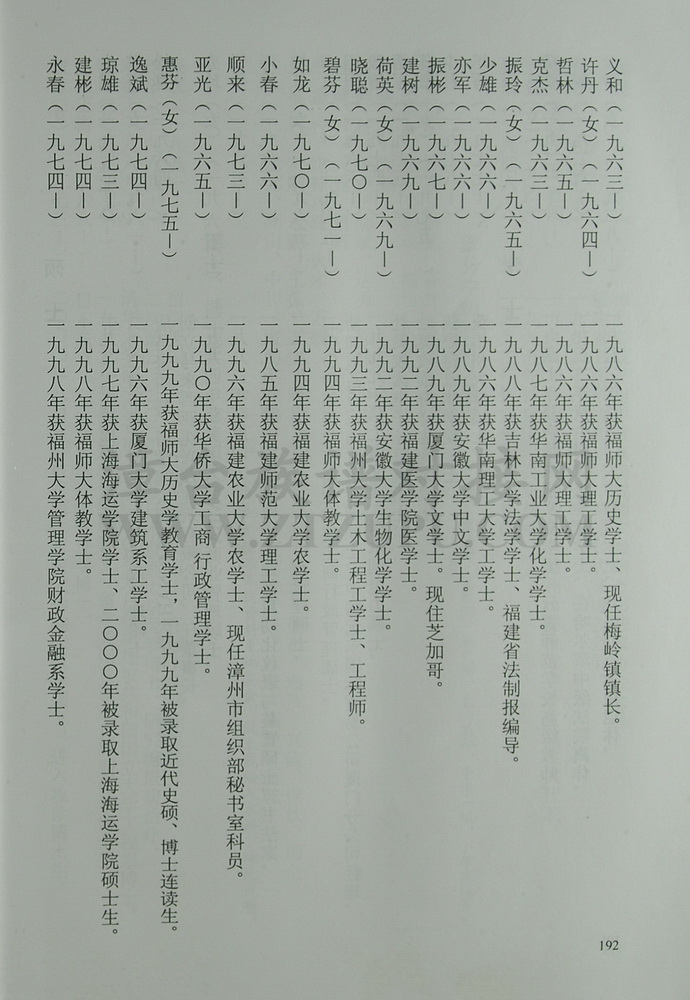 义和（一九六三—） 一九八六年获福师大历史学士、现任梅岭镇镇长。
许丹（女）（一九六四—） 一九八六年获福师大理工学士。
哲林（一九六五—） 一九八六年获福师大理工学士。
克杰（一九六三—） 一九八七年获华南工业大学化学学士。
振玲（女）（一九六五—） 一九八八年获吉林大学法学学士、福建省法制报编导。
少雄（一九六六—） 一九八六年获华南理工大学工学士。
亦军（一九六六—） 一九八九年获安徽大学中文学士。
振彬（一九六七—） 一九八九年获厦门大学文学士。现住芝加哥。
建树（一九六九—） 一九九二年获福建医学院医学士。
荷英（女）（一九六九—） 一九九二年获安徽大学生物化学学士。
晓聪（一九七〇—） 一九九三年获福州大学土木工程工学士、工程师。
碧芬（女）（一九七一—） 一九九四年获福师大体教学士。
如龙（一九七〇—） 一九九四年获福建农业大学农学士。
小春（一九六六—） 一九八五年获福建师范大学理工学士。
顺来（一九七三—） 一九九六年获福建农业大学农学士、现任漳州市组织部秘书室科员。
亚光（一九六五—） 一九九〇年获华侨大学工商 行政管理学士。
惠芬（女）（一九七五—） 一九九九年获福师大历史学教育学士，一九九九年被录取近代史硕、博士连读生。
逸斌（一九七四—） 一九九六年获厦门大学建筑系工学士。
琼雄（一九七三—） 一九九七年获上海海运学院学士、二〇〇〇年被录取上海海运学院硕士生。
建彬（一九七四—） 一九九八年获福师大体教学士。
永春（一九七四—） 一九九八年获福州大学管理学院财政金融系学士。
192